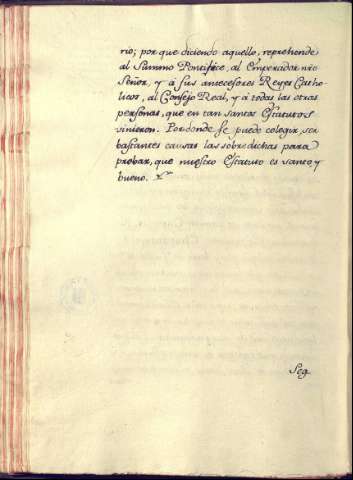 rio; por que diciendo aquello, reprehende
al Summo Pontifice, al Emperador nro
Señor, y à sus antecesores Reyes Catho-
licos, al Consejo Real, y à todas las otras
personas, que en tan santos Estatutos
vinieron. Por donde se puede colegir, ser
bastantes causas las sobredichas para
probar, que nuestro Estatuto es santo, y
bueno.
Seg